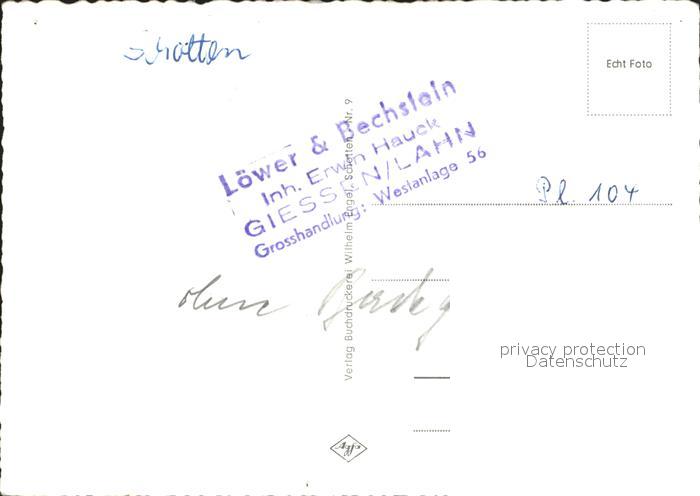 Schotten
Echt Foto
Löwer & Bechstein
Inh. Erwin Hauck
GIESSEN/LAHN
Grosshandlung: Westanlage 56
Verlag Buchdruckerei Wilhelm Engel, Schotten Nr. 9
Pl. 104
ohne
privacy protection
Datenschutz
Agfa